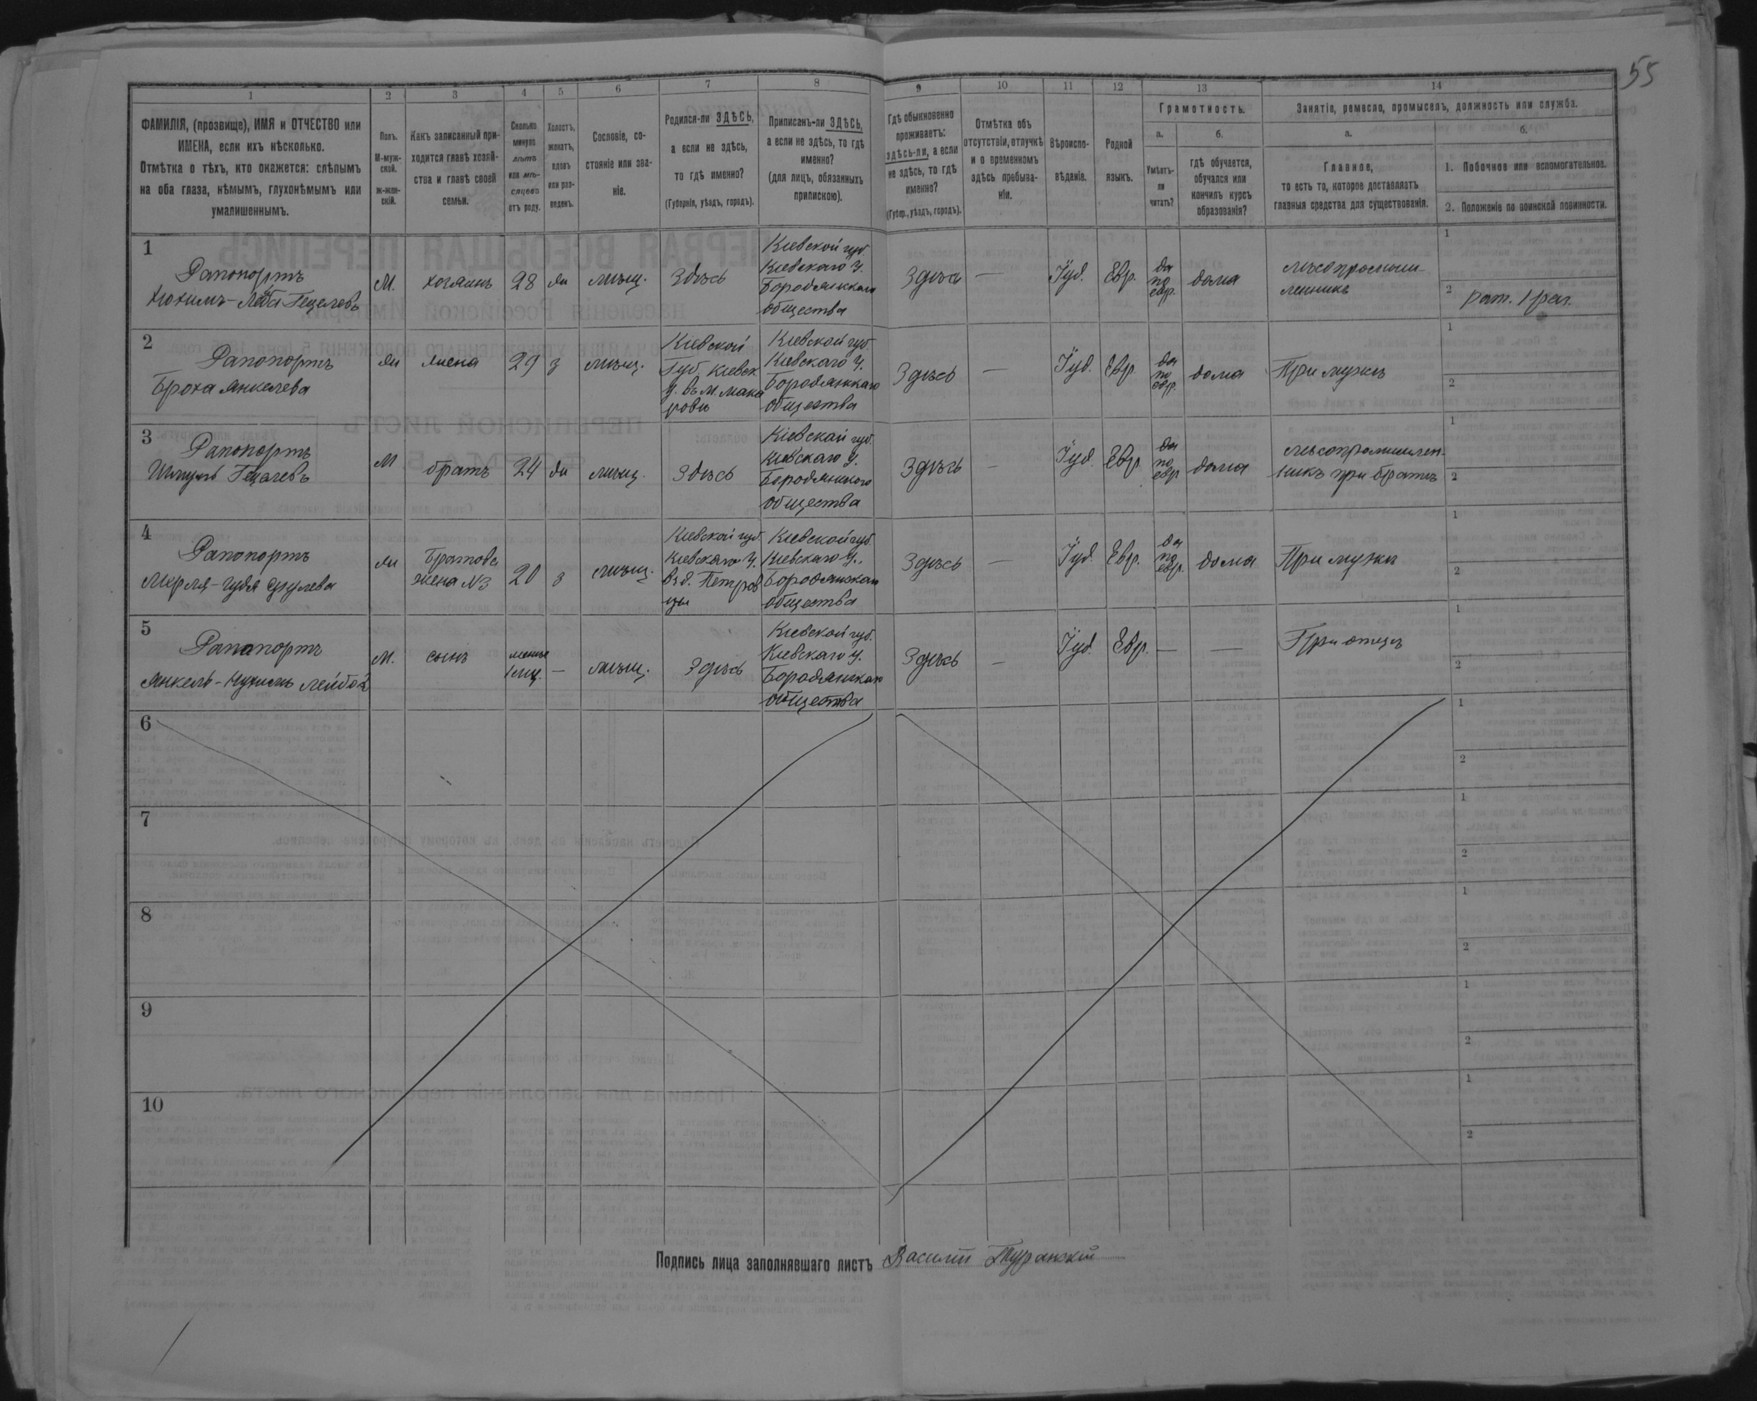 55
1
2
3
4
5
6
7
8
9
10
11
12
13
14
ФАМИЛІЯ, (прозвище), ИМЯ и ОТЧЕСТВО или
ИМЕНА, если ихъ нѣсколько.
Отмѣтка о тѣхъ, кто окажется: слѣпымъ
на оба глаза, нѣмымъ, глухонѣмымъ или
умалишеннымъ.
Полъ.
М-муж-
ской.
Ж-жен-
скій.
Какъ записанный при-
ходится главѣ хозяй-
ства и главѣ своей
семьи.
Сколько
минуло
лѣтъ
или мѣ-
сяцевъ
отъ роду.
Холостъ,
женатъ,
вдовъ
или раз-
веденъ.
Сословіе, со-
стояніе или зва-
ніе.
Родился-ли ЗДѢСЬ,
а если не здѣсь,
то гдѣ именно?
(Губернія, уѣздъ, городъ).
Приписанъ-ли ЗДѢСЬ,
а если не здѣсь, то гдѣ
именно?
(для лицъ, обязанныхъ
припискою).
Гдѣ обыкновенно
проживаетъ:
здѣсь-ли, а если
не здѣсь, то гдѣ
именно?
(Губер., уѣздъ, городъ).
Отмѣтка объ
отсутствіи, отлучкѣ
и о временномъ
здѣсь пребыва-
ніи.
Вѣроиспо-
вѣданіе.
Родной
языкъ.
Грамотность.
а.
Умѣетъ-
ли
читать?
б.
гдѣ обучается,
обучался или
кончилъ курсъ
образованія?
Занятіе, ремесло, промыселъ, должность или служба.
а.
Главное,
то есть то, которое доставляетъ
главныя средства для существованія.
б.
1. Побочное или вспомогательное.
2. Положеніе по воинской повинности.
1
Рапопортъ
Лейба Гецелевъ
М.
хозяинъ
28
мѣщ.
Здѣсь
Кіевской губ.
Кіевскаго у.
Бородянскаго
общества
Здѣсь
—
Іуд.
Евр.
да
по
евр.
дома
лѣсопромыш-
ленникъ
1
2
рат. 1 раз.
2
Рапопортъ
Броха Янкелева
жена
29
з
мѣщ.
Кіевской
Губ, Кіевск
у. въ м. Мака
ровѣ
Кіевской губ
Кіевскаго у.
Бородянскаго
общества
Здѣсь
—
Іуд.
Евр.
да
по
евр.
дома
При мужѣ
1
2
3
Рапопортъ
Гецелевъ
М
братъ
24
мѣщ.
Здѣсь
Кіевской губ.
Кіевскаго у.
Бородянскаго
общества
Здѣсь
—
Іуд.
Евр.
да
по
евр
дома
лѣсопромышлен-
никъ при братѣ
1
2
4
Рапопортъ
Братова
жена №3
20
з
мѣщ.
Кіевской губ.
Кіевскаго у.
въ д. Петров
цы
Кіевской губ
Кіевскаго у.
Бородянскаго
общества
Здѣсь
—
Іуд.
Евр.
да
по
евр.
дома
При мужѣ
1
2
5
Рапопортъ
Янкель-
М.
сынъ
менѣе
1 мц.
—
мѣщ.
Здѣсь
Кіевской губ.
Кіевскаго у.
Бородянскаго
общества
Здѣсь
—
Іуд
Евр.
—
—
При отцѣ
1
2
6
1
2
7
1
2
8
1
2
9
1
2
10
1
2
Подпись лица заполнявшаго листъ Василій